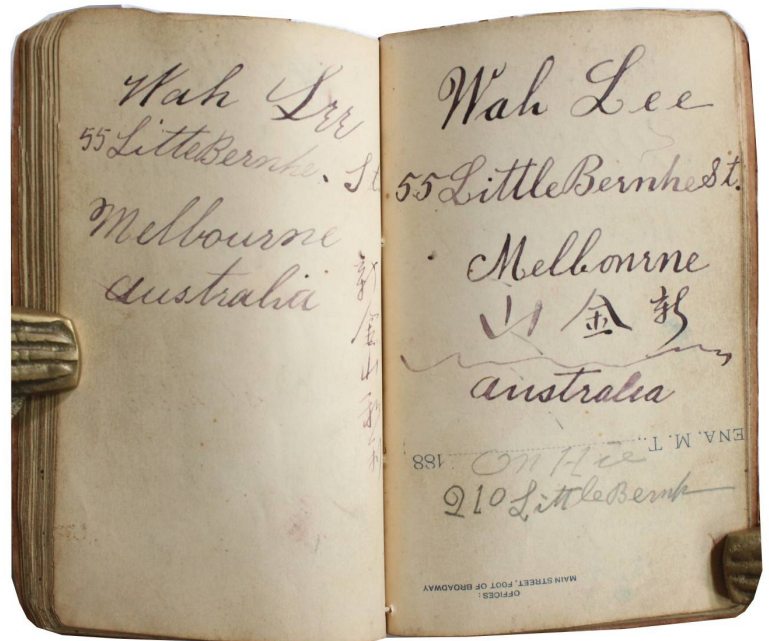 Wah Lee
55 LitteBernhe. St
Melbourne
australia
新金山
Wah Lee
55 LittleBernheSt.
Melbonrne
新金山
australia
ENA, M. T., 188
On Hie
210 LittleBernh
OFFICES:
MAIN STREET, FOOT OF BROADWAY